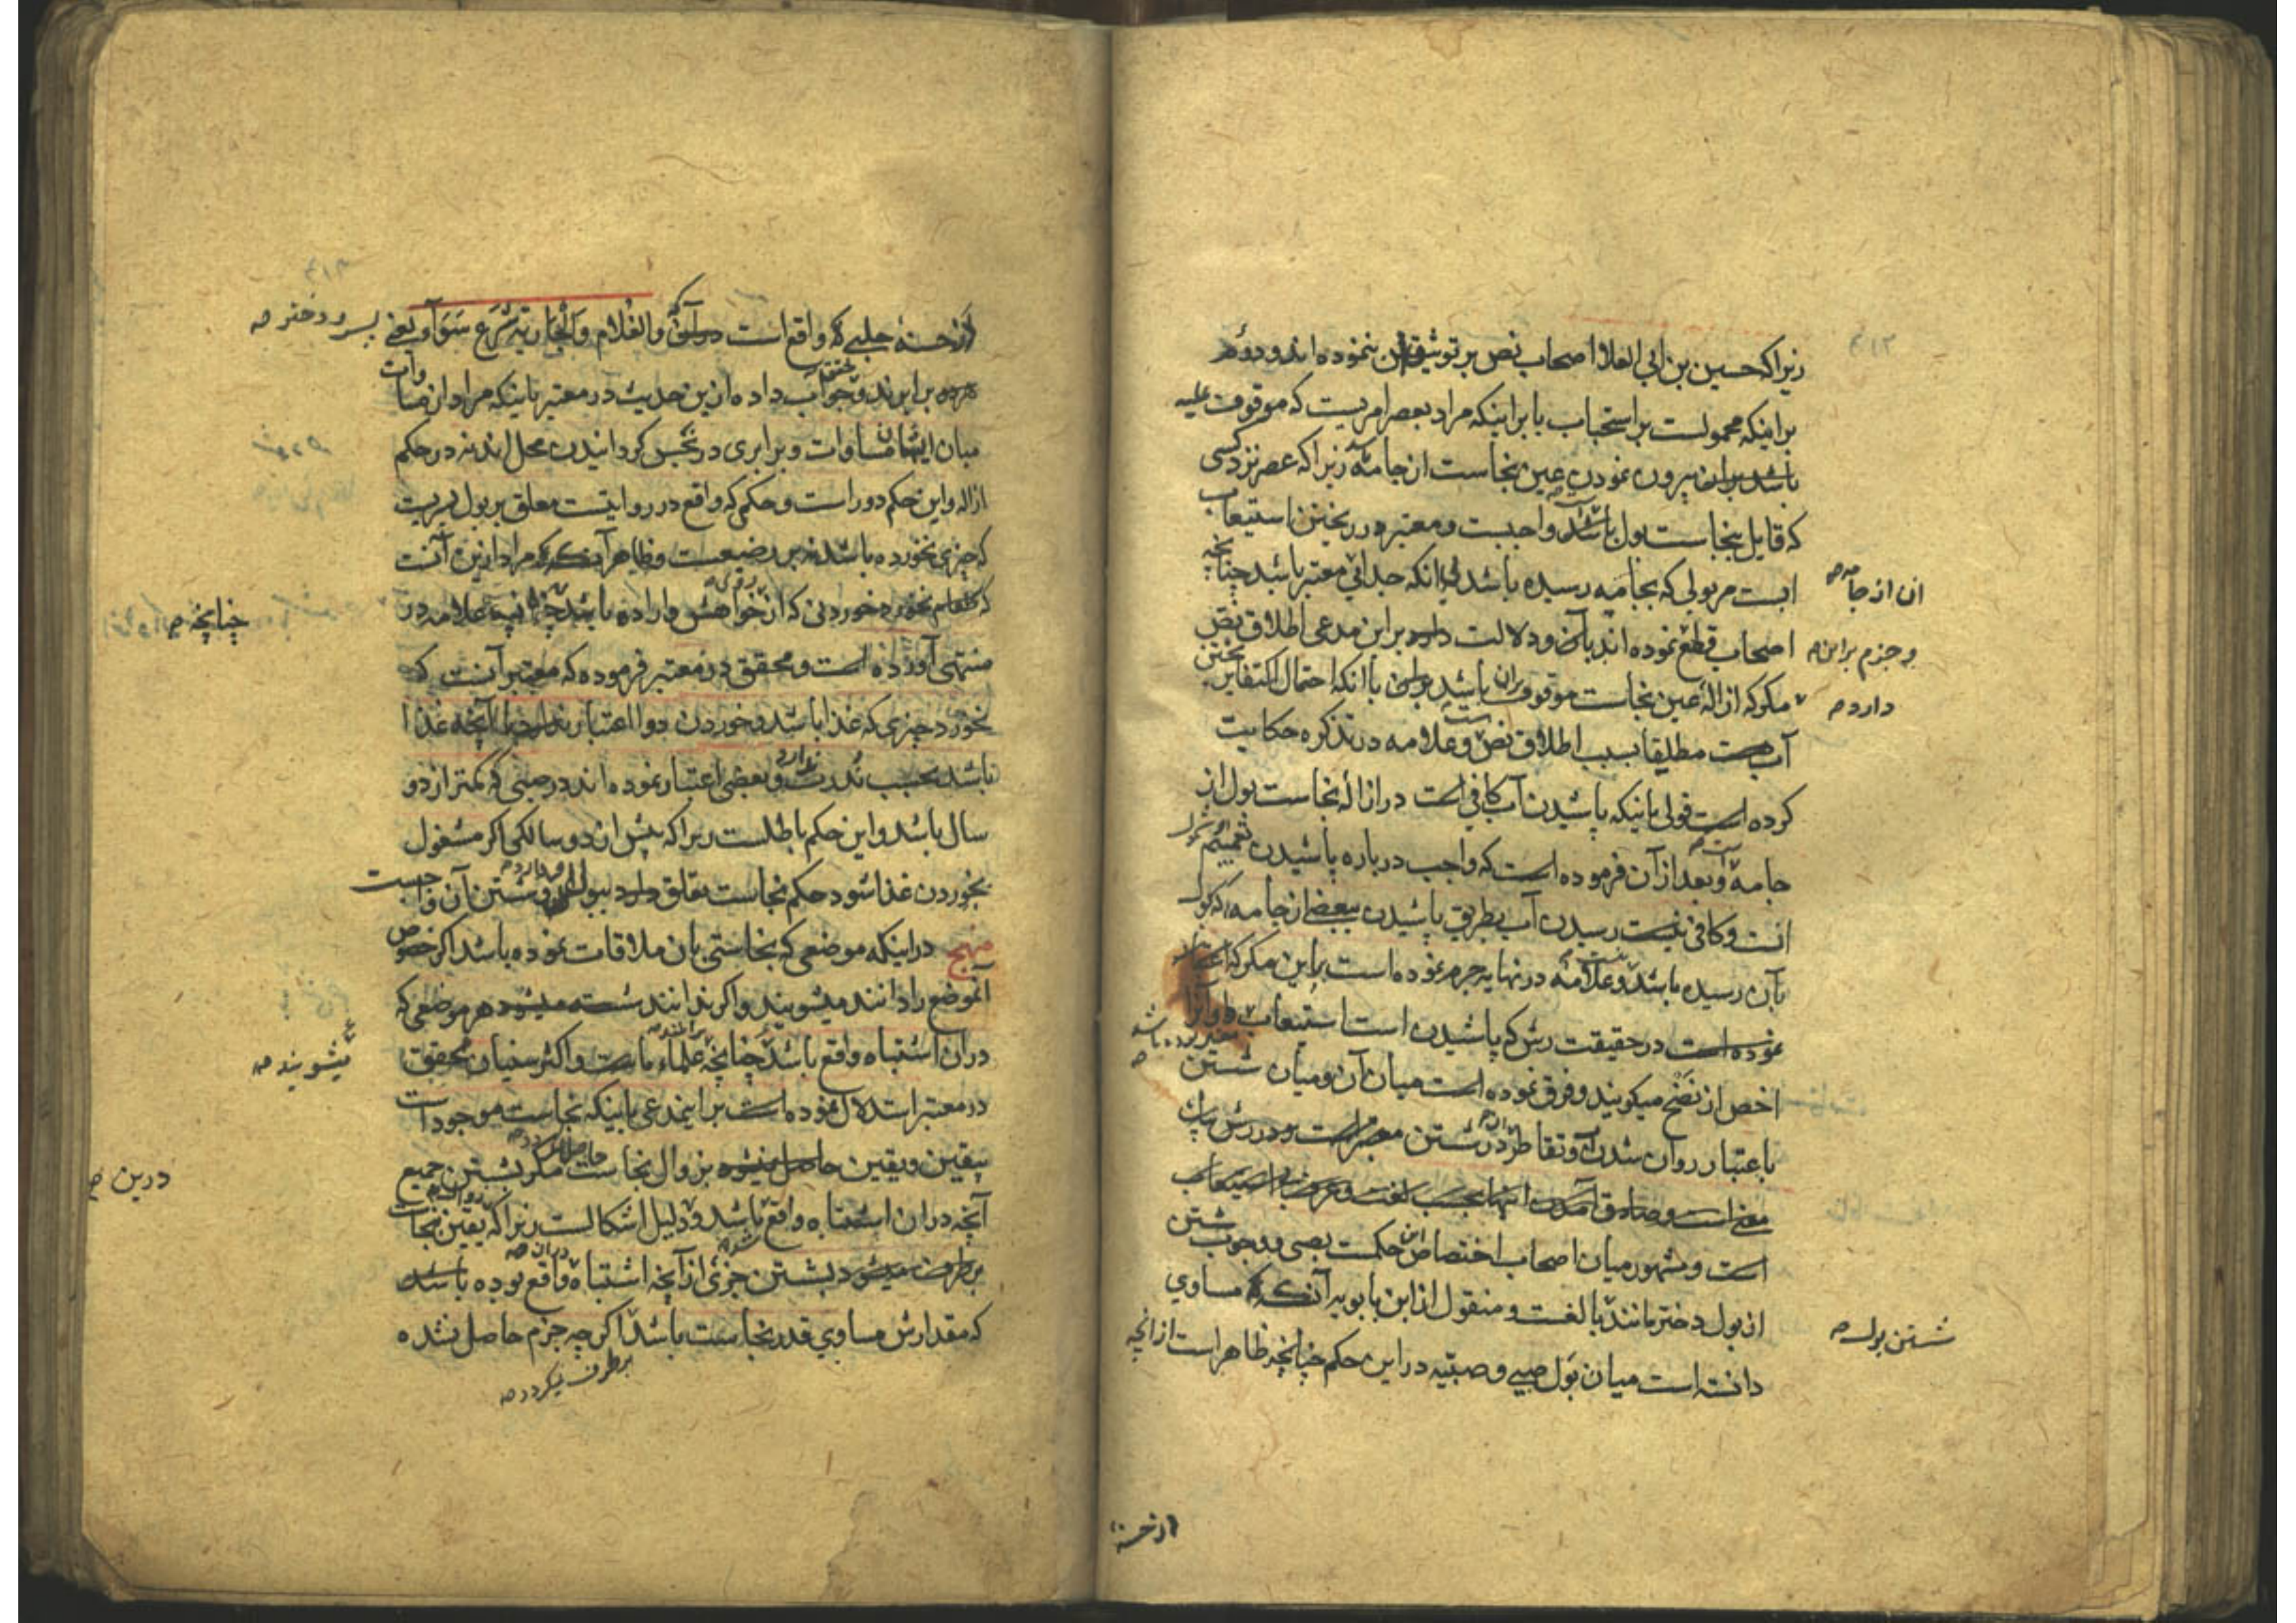 زیرا که حسین بن ابی العلا اصحاب نص بر توثیق ننموده اند و دوم
بر اینکه محمولست بر استحباب یا بر اینکه مراد بعصر امریست که موقوف علیه
باشد بیرون نمودن عین نجاست از جامه زیرا که عصر نزد کسی
که قایل بنجاست بول باشد واجبست و معتبر در ریختن استیعاب
ابست مر بولی که بجامه رسیده باشد انکه جدائی معتبر باشد چنانچه
ان از جامه صح
اصحاب قطع نموده اند بآن و دلالت دارد بر این مدعی اطلاق نص
و جزم بر این صح
مکر که ازاله عین نجاست موقوف بران باشد با انکه احتمال اکتفا بریختن
دارد صح
آب هست مطلقا بسبب اطلاق نص و علامه در تذکره حکایت
کرده است قولی باینکه پاشیدن آب کافی است در ازاله نجاست بول از
جامه و بعد از آن فرموده است که واجب در باره پاشیدن تعمیم
انست و کافی نیست رسیدن آب بطریق پاشیدن ببعضی از جامه که بول
بآن رسیده باشد و علامه در نهایه جزم نموده است براین مکر که اعتبار
نموده است در حقیقت رش که پاشیدن است استیعاب و آنرا
اخص از نضح میکویند و فرق نموده است میان آن و میان شستن
باعتبار روان شدن آب و تقاطر در شستن
معنی است و صادق آمدن اینها بحسب لغت و عرف استیعاب
است و مشهور میان اصحاب اختصاص این حکمست بصبی و وجوب شستن
از بول دختر مانند بالغست و منقول از ابن بابویه آنکه مساوی
شستن بول صح
دانسته است میان بول صبی و صبیه در این حکم چنانچه ظاهر است از انچه
از حسنه
از حسنه حلبی که واقع است والغلام والجاریة شرع سواء یعنی پسر و دختر صح
برابرند و محقق جواب داده ازین حدیث در معتبر باینکه مراد از مساوات
میان ایشان مساوات و برابری در نجس کردانیدن محل اند نه در حکم
ازاله و این حکم دور است و حکمی که واقع در روایتست معلق بر بول پسریست
که چیزی نخورده باشد نه بر رضیعت و ظاهر آنکه مراد ازین آنست
که طعام نخورد خوردنی که از روی خواهش و اراده باشد چنانچه علامه در
چنانچه صح
منتهی آورده است و محقق در معتبر فرموده که معتبر آنست که
نخورد چیزی که غذا باشد و خوردن دوا اعتبار ندارد یا آنچه غذا
باشد بحسب ندرت و بعضی اعتبار نموده اند در صبی که کمتر از دو
سال باشد و این حکم باطلست زیرا که پیش از دو سالکی اکر مشغول
بخوردن غذا شود حکم نجاست تعلق دارد ببول او و شستن آن واجبست
منهج در اینکه موضعی که نجاستی بان ملاقات نموده باشد اکر خصوص
آنموضع را دانند میشویند و اکر ندانند شسته میشود هر موضعی که
دران اشتباه واقع باشد چنانچه علماء ماست و اکثر سنیان محقق
میشویند صح
در معتبر استدلال نموده است بر این مدعی باینکه نجاست موجود است
بیقین و یقین حاصل نمیشود بزوال نجاست مکر بشستن جمیع
آنچه دران اشتباه واقع باشد و دلیل اشکالست زیرا که یقین نجاست
درین صح
برطرف میشود بشستن جزئی از آنچه اشتباه دران واقع بوده باشد
که مقدارش مساوی قدر نجاست باشد اکرچه جزم حاصل نشده
برطرف میکردد صح